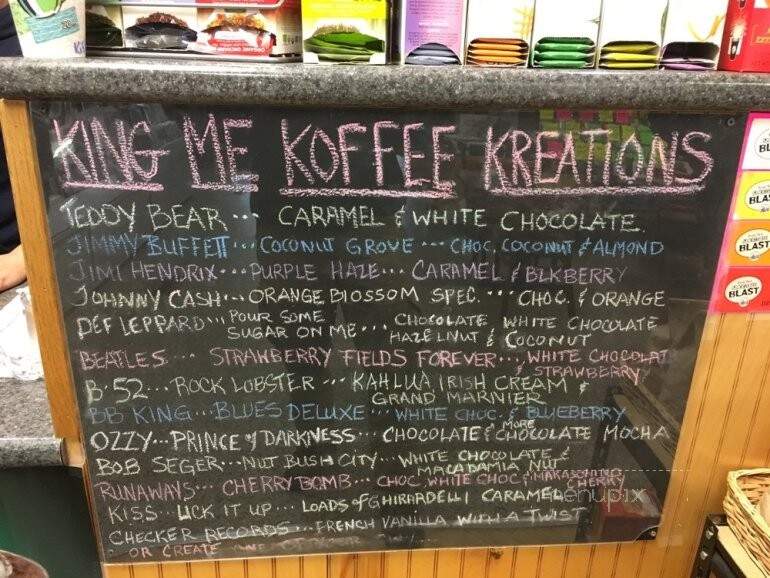 KING ME KOFFEE KREATIONS
TEDDY BEAR... CARAMEL & WHITE CHOCOLATE.
JIMMY BUFFETT... COCONUT GROVE... CHOC, COCONUT & ALMOND
JIMI HENDRIX... PURPLE HAZE... CARAMEL & BLKBERRY
JOHNNY CASH... ORANGE BLOSSOM SPEC.... CHOC. & ORANGE
DEF LEPPARD... POUR SOME SUGAR ON ME... CHOCOLATE WHITE CHOCOLATE
HAZELNUT & COCONUT
BEATLES... STRAWBERRY FIELDS FOREVER... WHITE CHOCOLAT
& STRAWBERRY
B-52... ROCK LOBSTER... KAHLUA IRISH CREAM &
GRAND MARNIER
BB KING... BLUES DELUXE... WHITE CHOC. & BLUEBERRY
OZZY... PRINCE of DARKNESS... CHOCOLATE & MORE CHOCOLATE MOCHA
BOB SEGER... NUT BUSH CITY... WHITE CHOCOLATE &
MACADAMIA NUT
RUNAWAYS... CHERRY BOMB... CHOC WHITE CHOC &
CHERRY
KISS... LICK IT UP... LOADS of GHIRARDELLI CARAMEL
menupix
CHECKER RECORDS... FRENCH VANILLA WITH A TWIST
OR CREATE
BLAST
BLAST